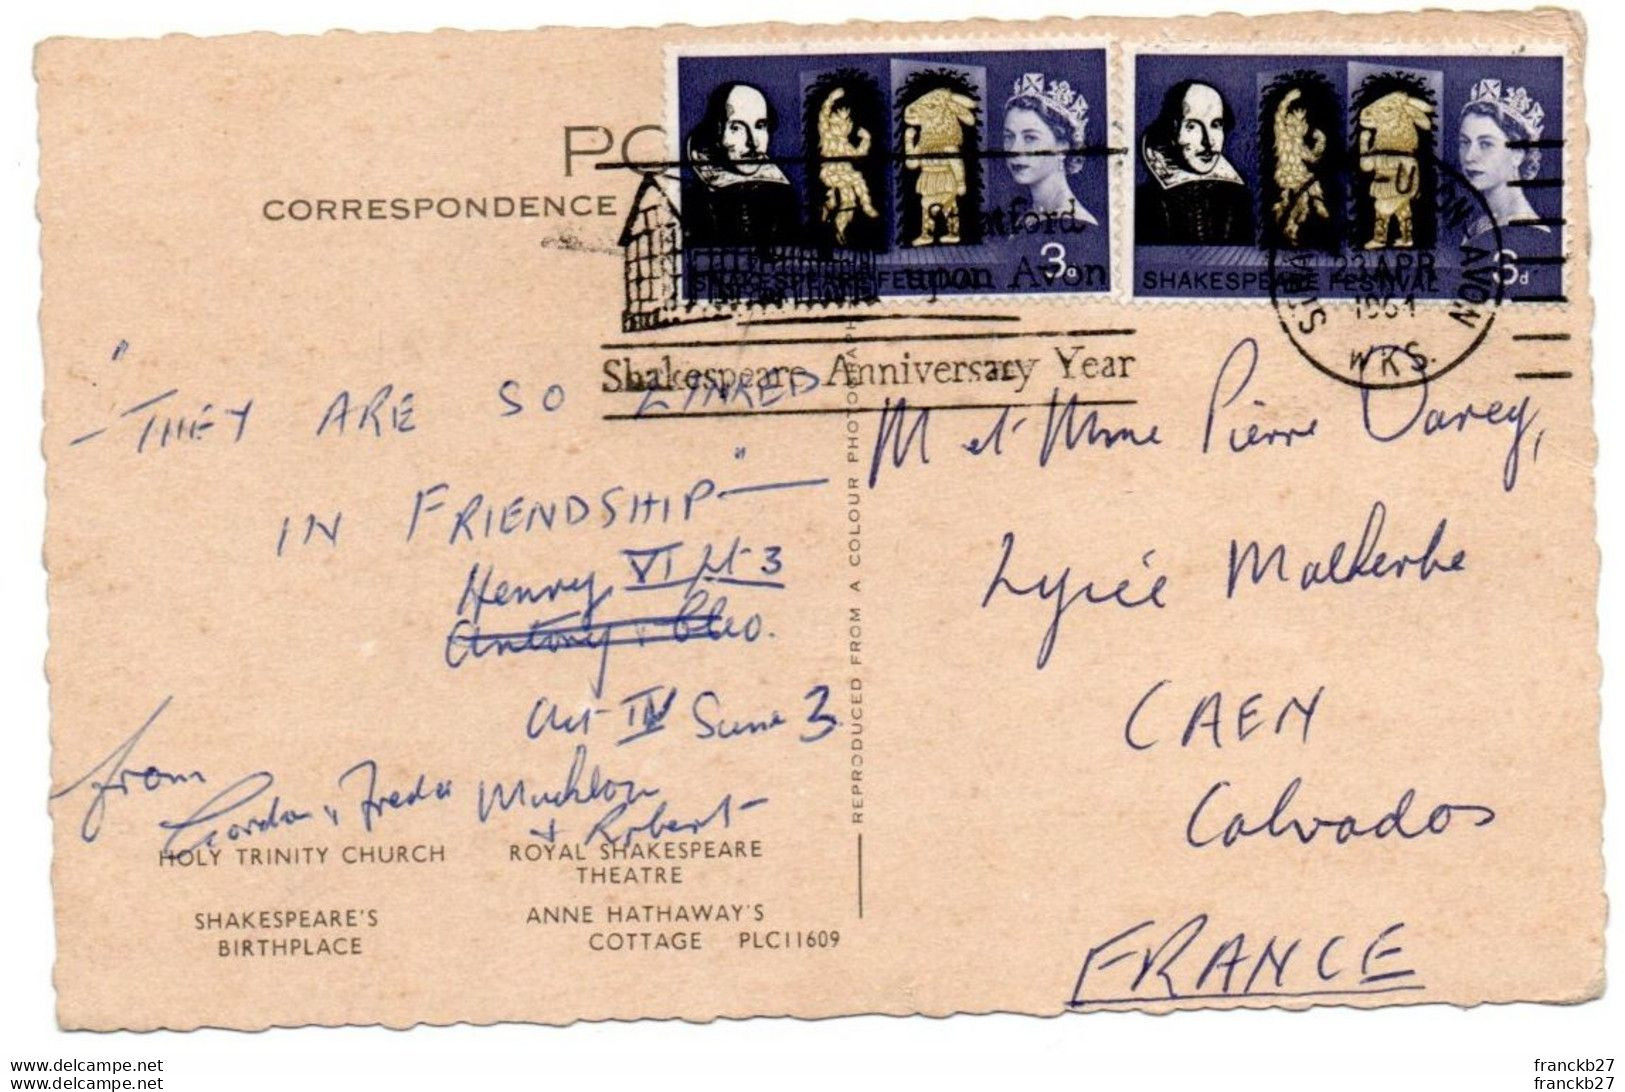 PO
CORRESPONDENCE
SHAKESPEARE FESTIVAL
3d
SHAKESPEARE FESTIVAL
3d
Stratford
upon Avon
Shakespeare Anniversary Year
-UPON-AVON
23 APR
1964
WKS.
"
- THEY ARE SO LINKED
IN FRIENDSHIP" —
Henry VI pt 3
Antony & Cleo.
Act IV Scene 3.
from
Gordon & Freda
+ Robert
HOLY TRINITY CHURCH
ROYAL SHAKESPEARE
THEATRE
SHAKESPEARE'S
BIRTHPLACE
ANNE HATHAWAY'S
COTTAGE PLC11609
REPRODUCED FROM A COLOUR PHOTOGRAPH
M et Mme Pierre Davey,
Lycée Malherbe
CAEN
Calvados
FRANCE
franckb27
franckb27
franckb27
franckb27